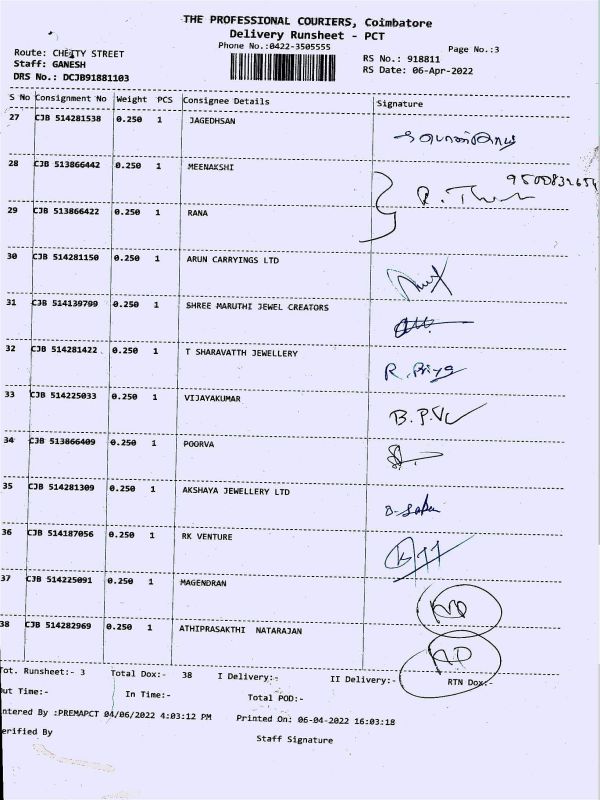 THE PROFESSIONAL COURIERS, Coimbatore
Delivery Runsheet - PCT
Phone No.:0422-3505555
Page No.:3
Route: CHETTY STREET
Staff: GANESH
DRS No.: DCJB91881103
RS No.: 918811
RS Date: 06-Apr-2022
S No Consignment No Weight PCS Consignee Details Signature
27 CJB 514281538 0.250 1 JAGEDHSAN
28 CJB 513866442 0.250 1 MEENAKSHI
29 CJB 513866422 0.250 1 RANA
30 CJB 514281150 0.250 1 ARUN CARRYINGS LTD
31 CJB 514139799 0.250 1 SHREE MARUTHI JEWEL CREATORS
32 CJB 514281422 0.250 1 T SHARAVATTH JEWELLERY R. Priya
33 CJB 514225033 0.250 1 VIJAYAKUMAR
34 CJB 513866409 0.250 1 POORVA
35 CJB 514281309 0.250 1 AKSHAYA JEWELLERY LTD
36 CJB 514187056 0.250 1 RK VENTURE
37 CJB 514225091 0.250 1 MAGENDRAN
38 CJB 514282969 0.250 1 ATHIPRASAKTHI NATARAJAN
Tot. Runsheet:- 3 Total Dox:- 38 I Delivery:- II Delivery:- RTN Dox:-
Out Time:- In Time:- Total POD:-
ntered By :PREMAPCT 04/06/2022 4:03:12 PM Printed On: 06-04-2022 16:03:18
erified By Staff Signature